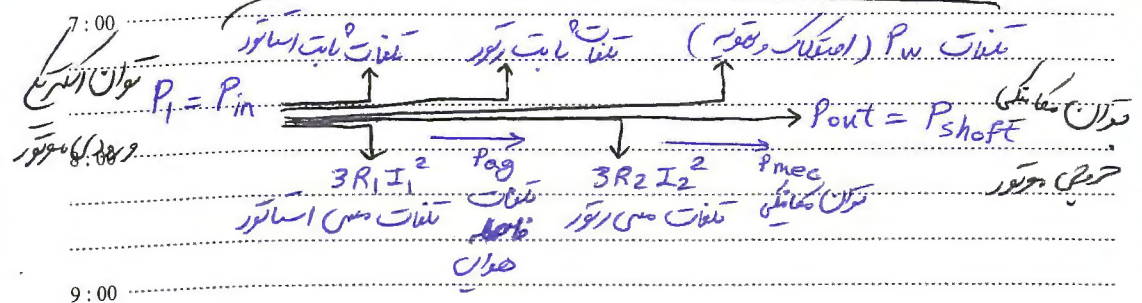 7:00
تلفات ثابت استاتور تلفات ثابت رتور تلفات Pw (اصطکاک و تهویه)
توان الکتریکی
P₁ = Pin
ورودی موتور
Pout = Pshaft
توان مکانیکی
خروجی موتور
8:00
3R₁I₁² Pag 3R₂I₂² Pmec
تلفات مسی استاتور تلفات فاصله هوایی تلفات مسی رتور توان مکانیکی
9:00